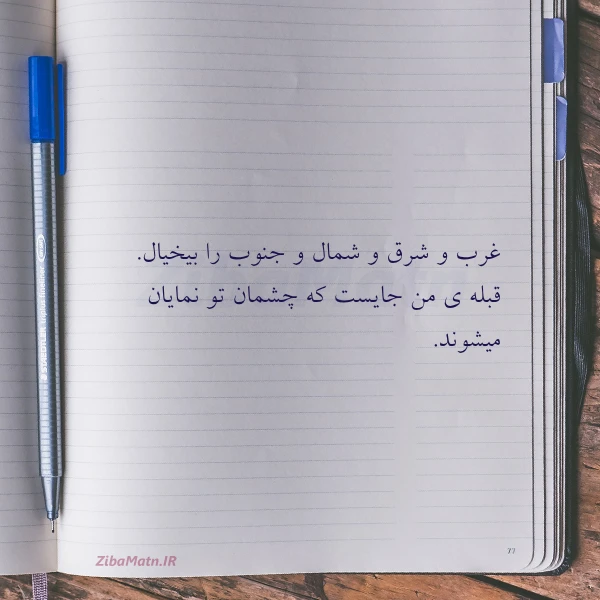 غرب و شرق و شمال و جنوب را بیخیال.
قبله ی من جایست که چشمان تو نمایان
میشوند.
ZibaMatn.IR